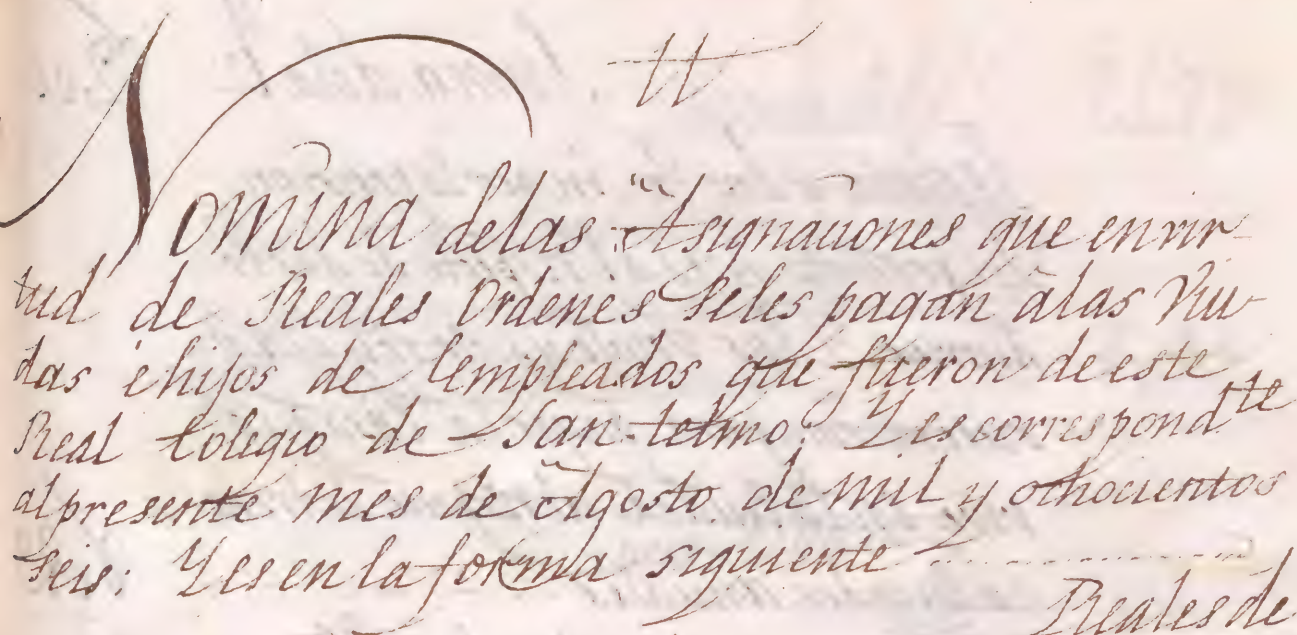 Nomina delas Asignaciones que en vir-
tud de Reales Ordenes seles pagan â las Viu-
das é hijos de Empleados que fueron de este
Real Colegio de San Telmo: Y es correspond.te
al presente mes de Agosto de mil y ochocientos
seis: Y es en la forma siguiente
Reales de